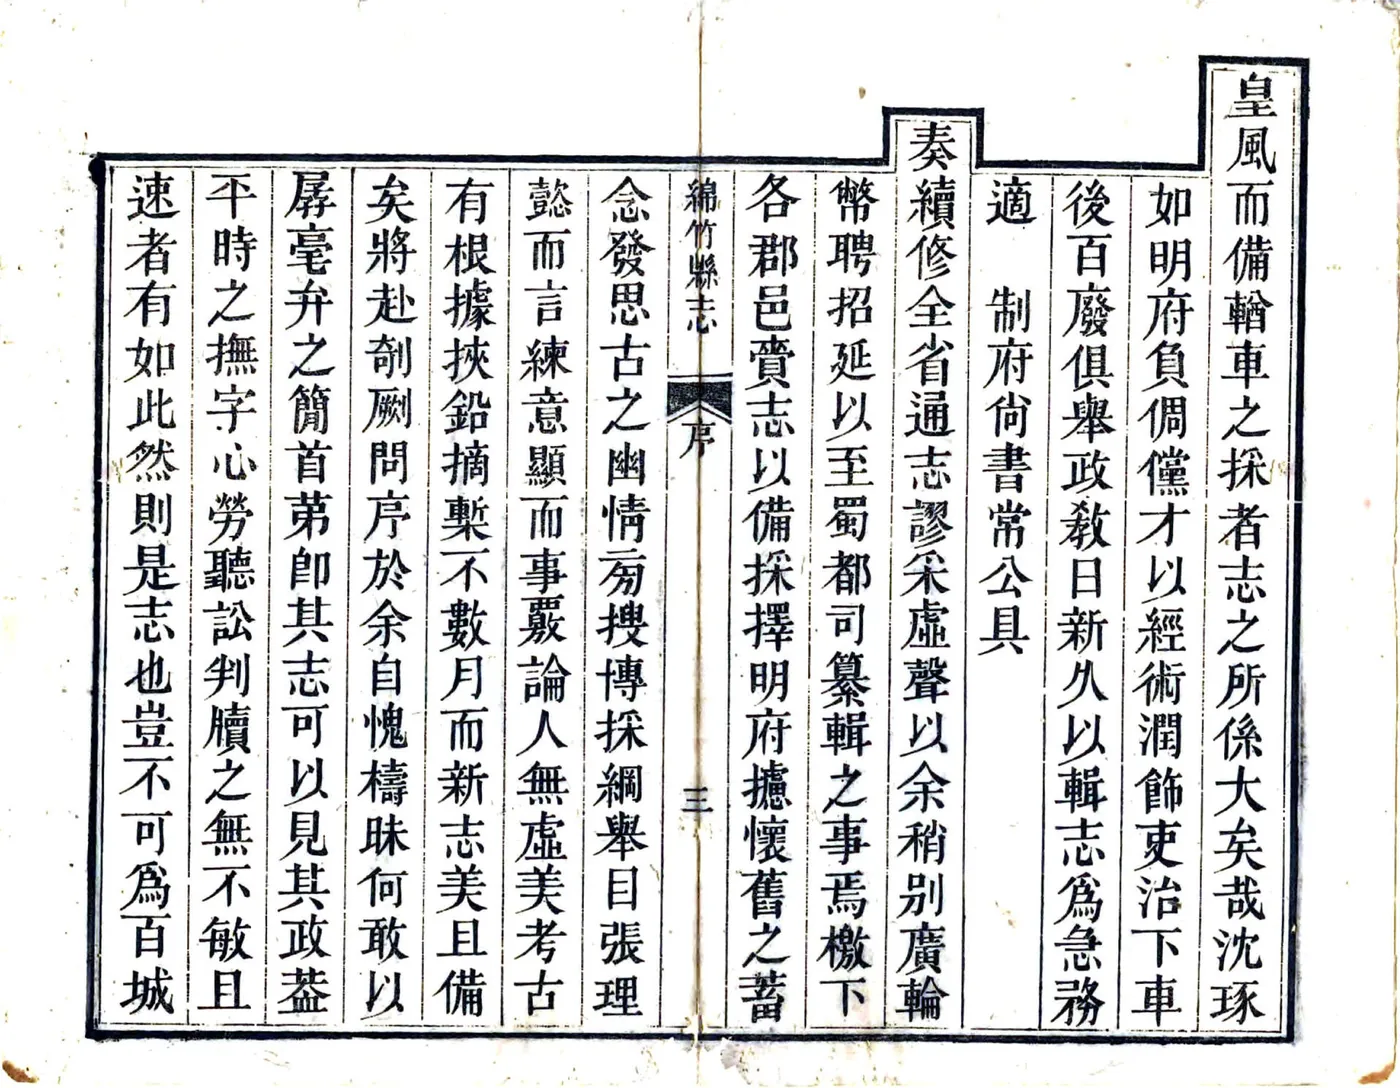 皇風而備輶車之採者志之所係大矣哉沈琢
如明府負倜儻才以經術潤飾吏治下車
後百廢俱舉政教日新久以輯志爲急務
適　制府尙書常公具
奏續修全省通志謬采虛聲以余稍别廣輪
幣聘招延以至蜀都司纂輯之事焉檄下
各郡邑賫志以備採擇明府攄懷舊之蓄
綿竹縣志　序　三
念發思古之幽情旁搜博採綱舉目張理
懿而言練意顯而事覈論人無虛美考古
有根據挾鉛摘槧不數月而新志美且備
矣將赴剞劂問序於余自愧檮昧何敢以
孱毫弁之簡首苐卽其志可以見其政葢
平時之撫字心勞聽訟判牘之無不敏且
速者有如此然則是志也豈不可爲百城